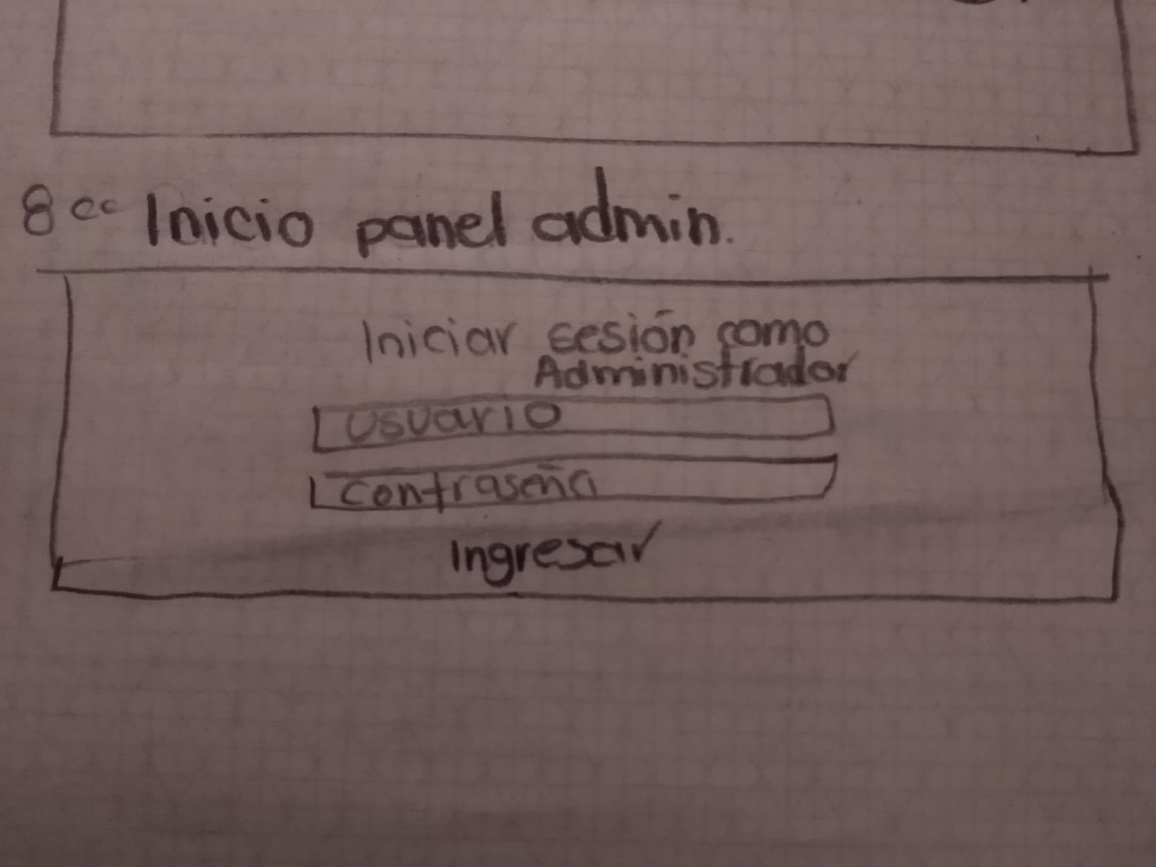 8 Inicio panel admin.
Iniciar sesión como
Administrador
Usuario
contraseña
Ingresar